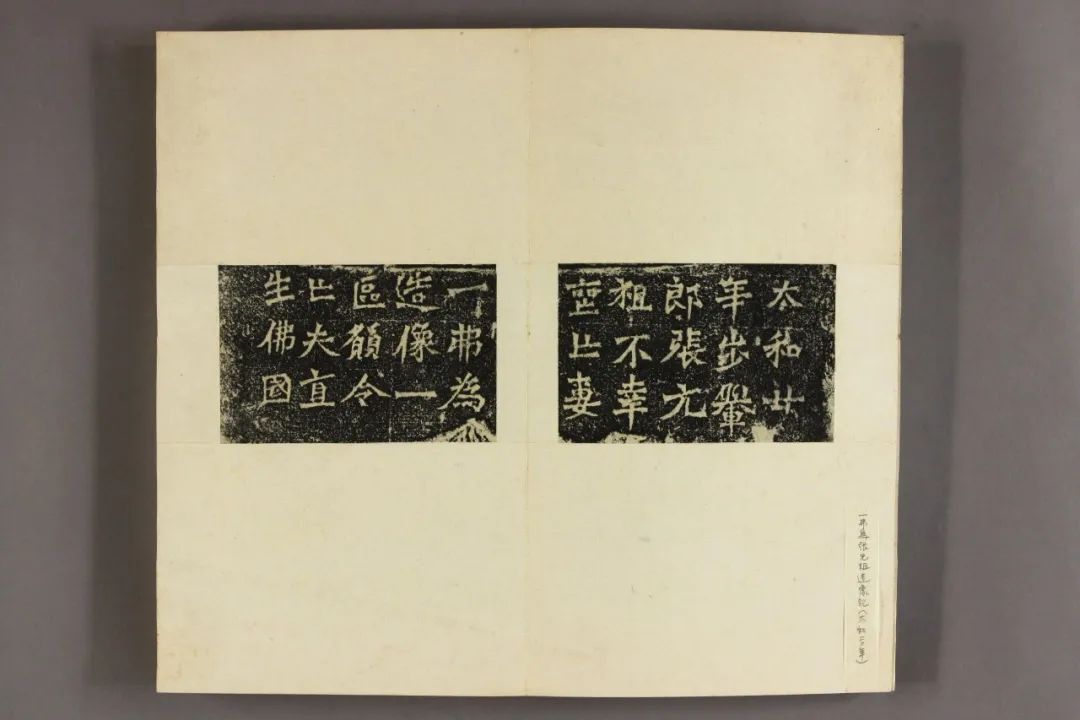 太和廿
年步轝
郎張元
祖不幸
喪亡妻
一弗為
造像一
區願令
亡夫直
生佛國
一弗為張元祖造像記(太和二〇年)